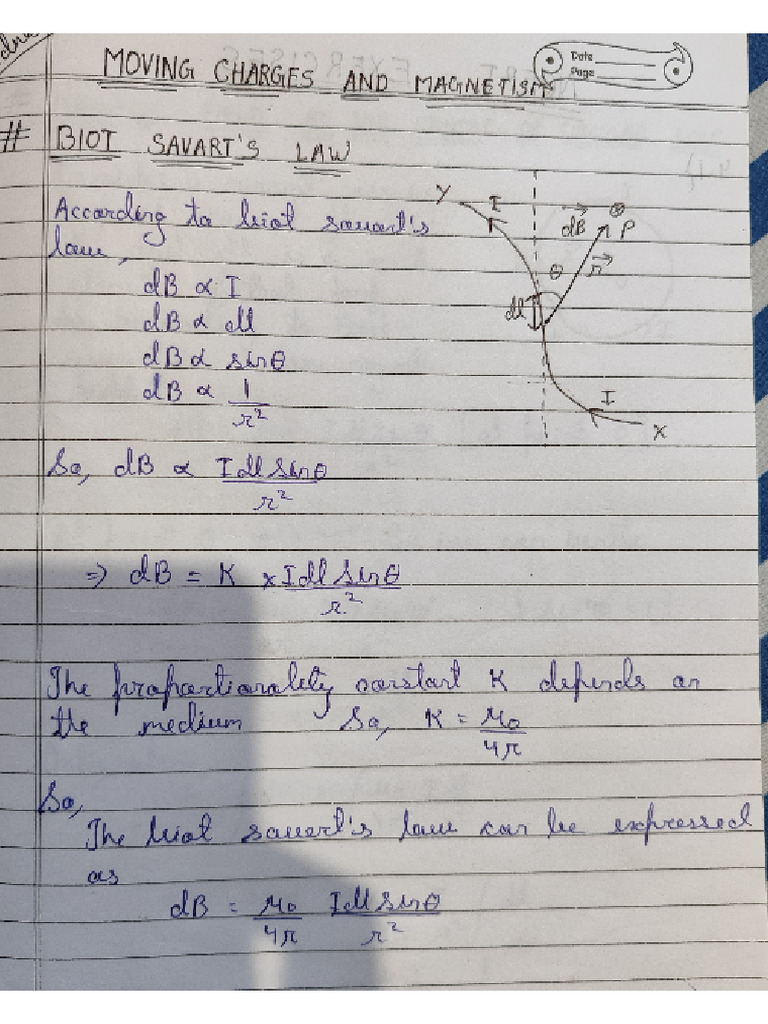 MOVING CHARGES AND MAGNETISM
Date
Page
# BIOT SAVART'S LAW
According to biot savart's
law,
dB ∝ I
dB ∝ dl
dB ∝ sinθ
dB ∝ 1/r²
Y I dB ⊗ P
θ r
dl
I
X
So, dB ∝ Idl sinθ/r²
⇒ dB = K × Idl sinθ/r²
The proportionality constant K depends on
the medium So, K = μ₀/4π
So,
The biot savart's law can be expressed
as
dB = μ₀/4π Idl sinθ/r²